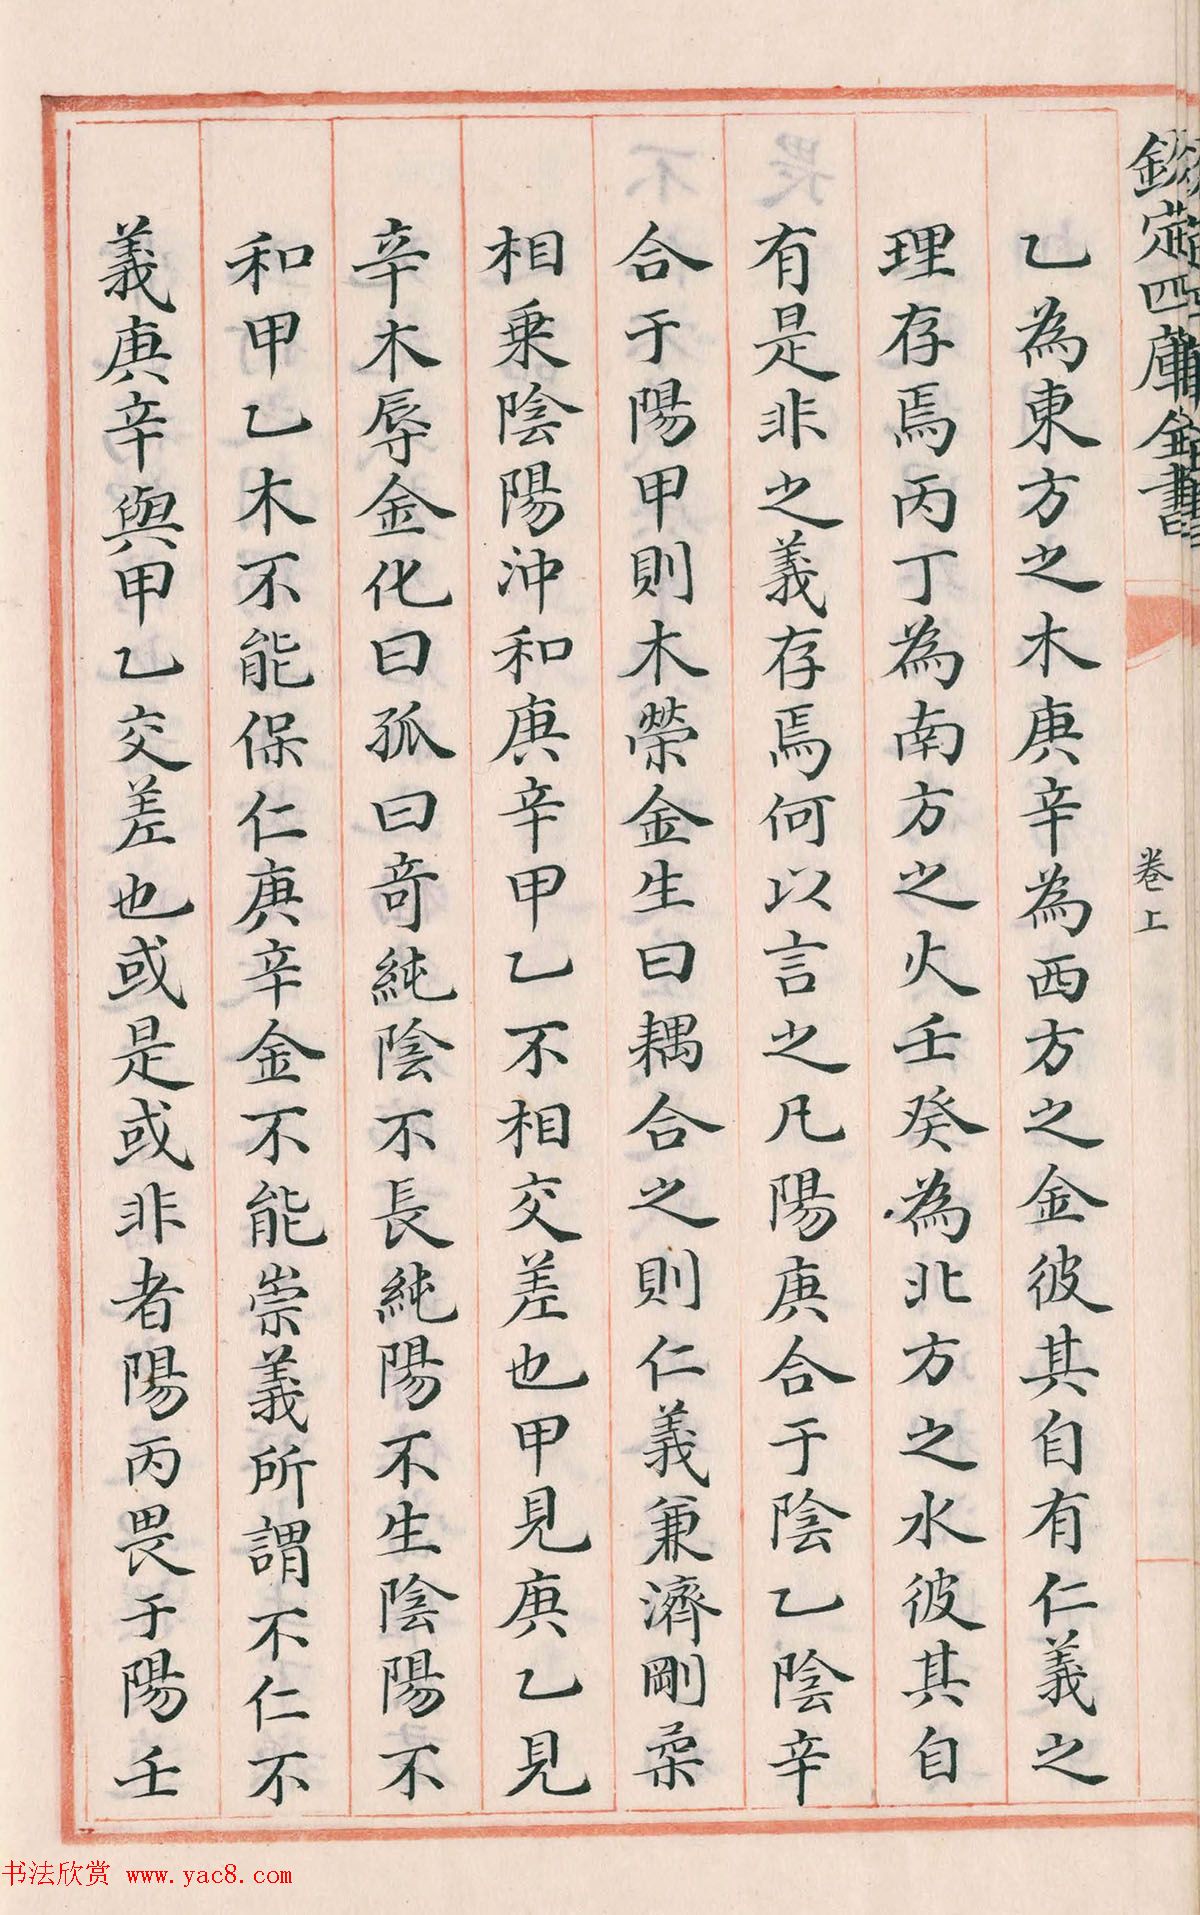 欽定四庫全書
卷上
乙為東方之木庚辛為西方之金彼其自有仁義之
理存焉丙丁為南方之火壬癸為北方之水彼其自
有是非之義存焉何以言之凡陽庚合于陰乙陰辛
合于陽甲則木榮金生曰耦合之則仁義兼濟剛柔
相乗陰陽沖和庚辛甲乙不相交差也甲見庚乙見
辛木辱金化曰孤曰竒純陰不長純陽不生陰陽不
和甲乙木不能保仁庚辛金不能崇義所謂不仁不
義庚辛與甲乙交差也或是或非者陽丙畏于陽壬
书法欣赏 www.yac8.com